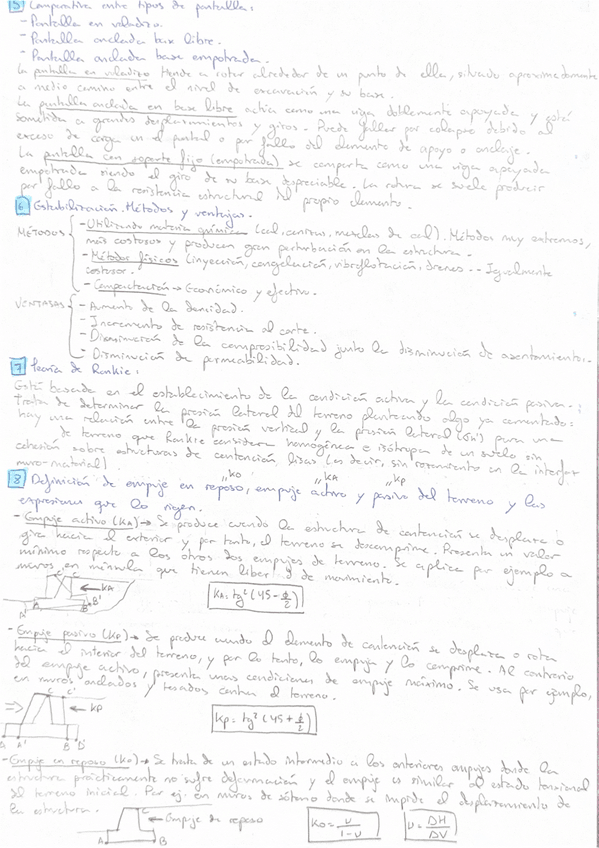 5 Comparativa entre tipos de pantalla:
- Pantalla en voladizo.
- Pantalla anclada base libre.
- Pantalla anclada base empotrada.
La pantalla en voladizo tiende a rotar alrededor de un punto de ella, situado aproximadamente
a medio camino entre el nivel de excavación y su base.
La pantalla anclada en base libre actúa como una viga doblemente apoyada y está
sometida a grandes desplazamientos y giros. Puede fallar por colapso debido al
exceso de carga en el puntal o por fallo del elemento de apoyo o anclaje.
La pantalla con soporte fijo (empotrada) se comporta como una viga apoyada
empotrada siendo el giro de su base despreciable. La rotura se suele producir
por fallo a la resistencia estructural del propio elemento.
6 Estabilización. Métodos y ventajas.
MÉTODOS
- Utilizando materia química (cal, cemento, mezclas de cal). Métodos muy extremos,
más costosos y producen gran perturbación en la estructura.
- Métodos físicos (inyección, congelación, vibroflotación, drenes... Igualmente
costosos.
- Compactación → Económico y efectivo.
VENTAJAS
- Aumento de la densidad.
- Incremento de resistencia al corte.
- Disminución de la compresibilidad junto la disminución de asentamientos.
- Disminución de permeabilidad.
7 Teoría de Rankie:
Está basada en el establecimiento de la condición activa y la condición pasiva.
Trata de determinar la presión lateral del terreno planteando algo ya comentado:
hay una relación entre la presión vertical y la presión lateral para una
de terreno que Rankie considera homogénea e isótropa de un suelo sin
cohesión sobre estructuras de contención lisas (es decir, sin rozamiento en la interfaz
muro-material)
"K0 "KA "Kp
8 Definición de empuje en reposo, empuje activo y pasivo del terreno y las
expresiones que lo rigen.
- Empuje activo (KA) → Se produce cuando la estructura de contención se desplaza o
gira hacia el exterior y por tanto, el terreno se descomprime. Presenta un valor
mínimo respecto a los otros dos empujes de terreno. Se aplica por ejemplo a
muros en ménsula que tienen libertad de movimiento.
← KA
A' A B' B
KA = tg² (45 - φ/2)
- Empuje pasivo (Kp) → Se produce cuando el elemento de contención se desplaza o rota
hacia el interior del terreno, y por lo tanto, lo empuja y lo comprime. Al contrario
del empuje activo, presenta unas condiciones de empuje máximo. Se usa por ejemplo,
en muros anclados y tesados contra el terreno.
C C'
← Kp
A A' B B'
Kp = tg² (45 + φ/2)
- Empuje en reposo (K0) → Se trata de un estado intermedio a los anteriores empujes donde la
estructura prácticamente no sufre deformación y el empuje es similar al estado tensional
del terreno inicial. Por ej. en muros de sótano donde se impide el desplazamiento de
la estructura.
C
← Empuje de reposo
A B
K0 = ν/1-ν
ν = ΔH/ΔV